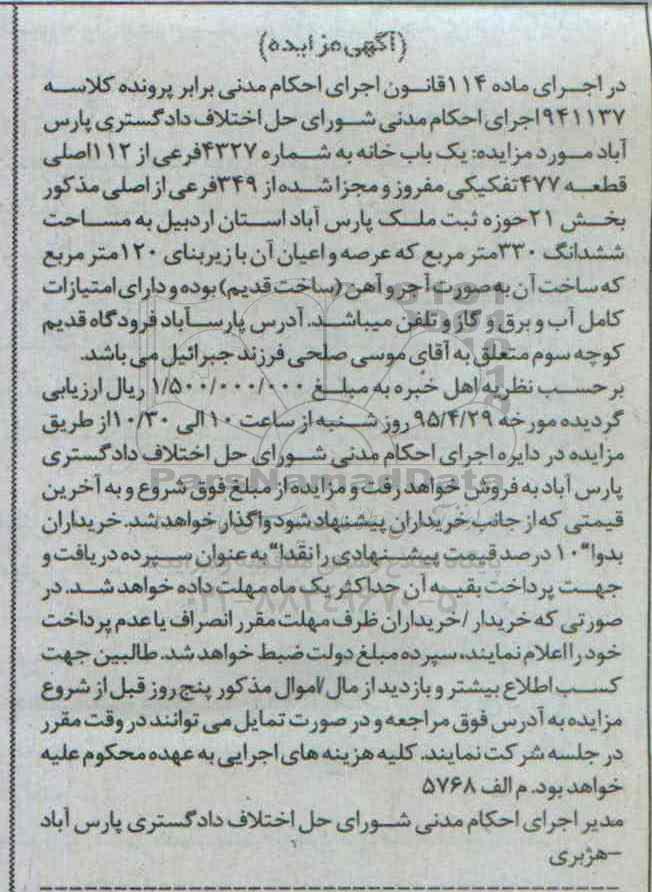 (آگهی مزایده)
در اجرای ماده ۱۱۴ قانون اجرای احکام مدنی برابر پرونده کلاسه
۹۴۱۱۳۷ اجرای احکام مدنی شورای حل اختلاف دادگستری پارس
آباد مورد مزایده: یک باب خانه به شماره ۴۳۲۷ فرعی از ۱۱۲ اصلی
قطعه ۴۷۷ تفکیکی مفروز و مجزا شده از ۳۴۹ فرعی از اصلی مذکور
بخش ۲۱ حوزه ثبت ملک پارس آباد استان اردبیل به مساحت
ششدانگ ۳۳۰ متر مربع که عرصه و اعیان آن با زیربنای ۱۲۰ متر مربع
که ساخت آن به صورت آجر و آهن (ساخت قدیم) بوده و دارای امتیازات
کامل آب و برق و گاز و تلفن میباشد. آدرس پارسآباد فرودگاه قدیم
کوچه سوم متعلق به آقای موسی صلحی فرزند جبرائیل می باشد.
بر حسب نظریه اهل خبره به مبلغ ۱/۵۰۰/۰۰۰/۰۰۰ ریال ارزیابی
گردیده مورخه ۹۵/۴/۲۹ روز شنبه از ساعت ۱۰ الی ۱۰/۳۰ از طریق
مزایده در دایره اجرای احکام مدنی شورای حل اختلاف دادگستری
پارس آباد به فروش خواهد رفت و مزایده از مبلغ فوق شروع و به آخرین
قیمتی که از جانب خریداران پیشنهاد شود واگذار خواهد شد. خریداران
بدوا" ۱۰ درصد قیمت پیشنهادی را نقدا" به عنوان سپرده دریافت و
جهت پرداخت بقیه آن حداکثر یک ماه مهلت داده خواهد شد. در
صورتی که خریدار / خریداران ظرف مهلت مقرر انصراف یا عدم پرداخت
خود را اعلام نمایند، سپرده مبلغ دولت ضبط خواهد شد. طالبین جهت
کسب اطلاع بیشتر و بازدید از مال/اموال مذکور پنج روز قبل از شروع
مزایده به آدرس فوق مراجعه و در صورت تمایل می توانند در وقت مقرر
در جلسه شرکت نمایند. کلیه هزینه های اجرایی به عهده محکوم علیه
خواهد بود. م الف ۵۷۶۸
مدیر اجرای احکام مدنی شورای حل اختلاف دادگستری پارس آباد
-هژبری
ParsNamadData